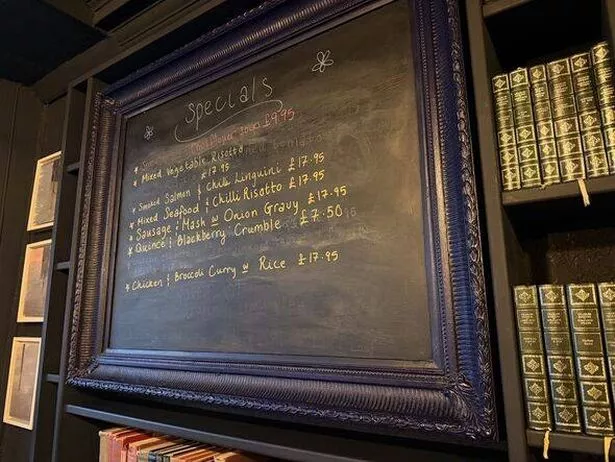 Specials
Soup £9.95
* Mixed Vegetable Risotto
£17.95
* Smoked Salmon & Chilli Linguini £17.95
* Mixed Seafood & Chilli Risotto £17.95
* Sausage & Mash w Onion Gravy £17.95
* Quince & Blackberry Crumble £7.50
* Chicken & Broccoli Curry w Rice £17.95